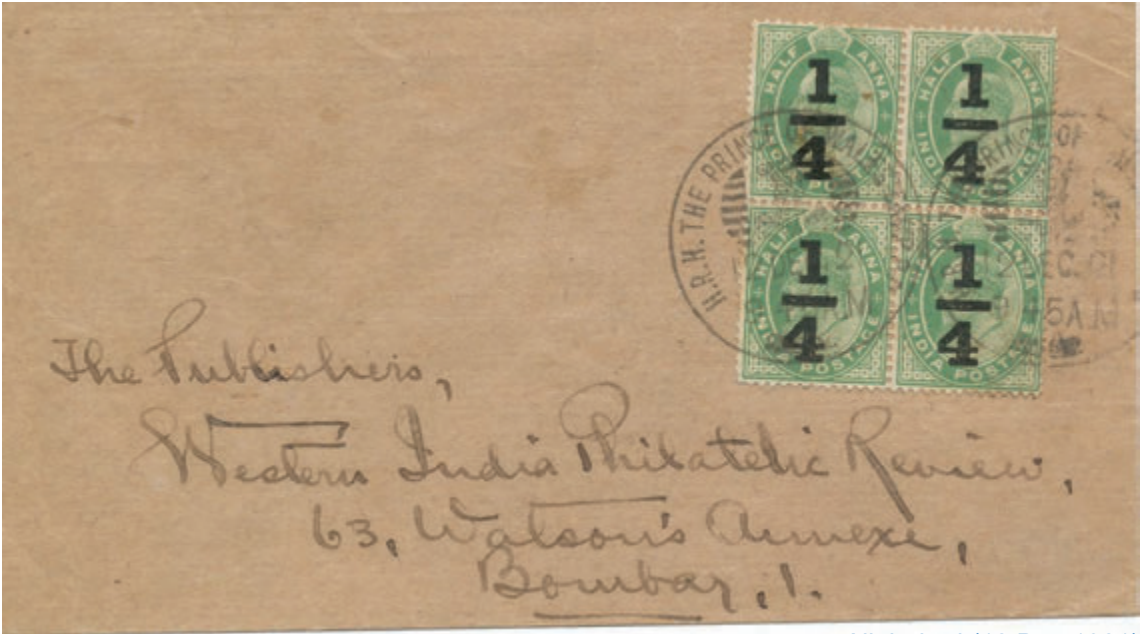 HALF ANNA
1/4
INDIA POSTAGE
HALF ANNA
1/4
INDIA POSTAGE
HALF ANNA
1/4
INDIA POSTAGE
HALF ANNA
1/4
INDIA POSTAGE
H.R.H. THE PRINCE
45AM
The Publishers,
Western India Philatelic Review,
63, Watson's Annexe,
Bombay, 1.